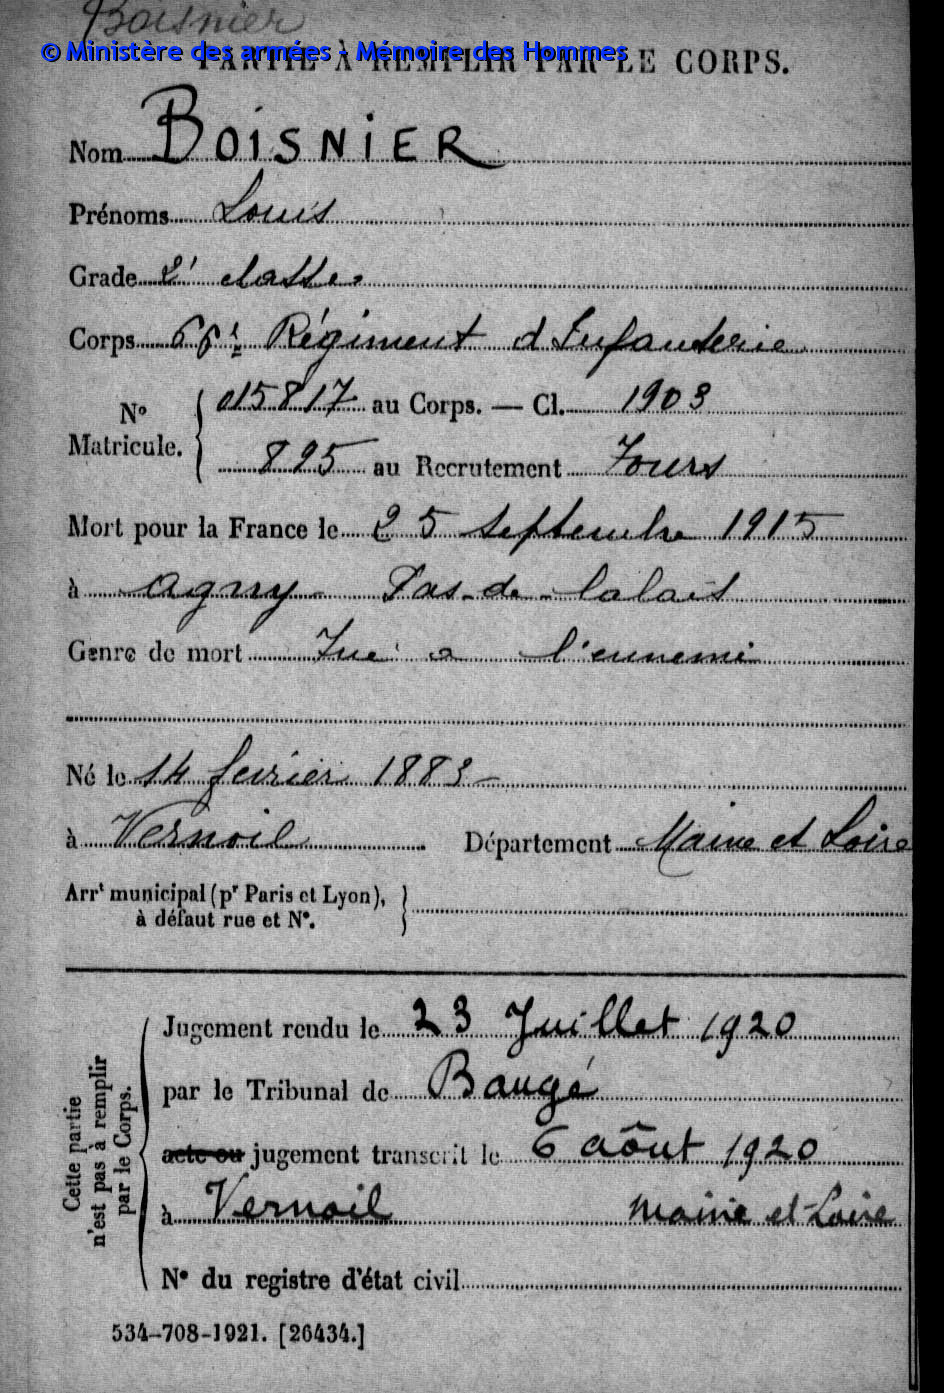 Boisnier
© Ministère des armées - Mémoire des Hommes
PARTIE À REMPLIR PAR LE CORPS.
Nom BOISNIER
Prénoms Louis
Grade 2e classe
Corps Régiment d'Infanterie
No Matricule. 015817 au Corps. — Cl. 1903
895 au Recrutement Tours
Mort pour la France le 25 septembre 1915
à Agny - Pas-de-Calais
Genre de mort Tué à l'ennemi
Né le 14 fevrier 1883
à Vernoil Département Maine et Loire
Arrt municipal (pr Paris et Lyon),
à défaut rue et No.
Cette partie
n'est pas à remplir
par le Corps.
Jugement rendu le 23 Juillet 1920
par le Tribunal de Baugé
acte ou jugement transcrit le 6 aôut 1920
à Vernoil Maine et-Loire
No du registre d'état civil
534-708-1921. [26434.]